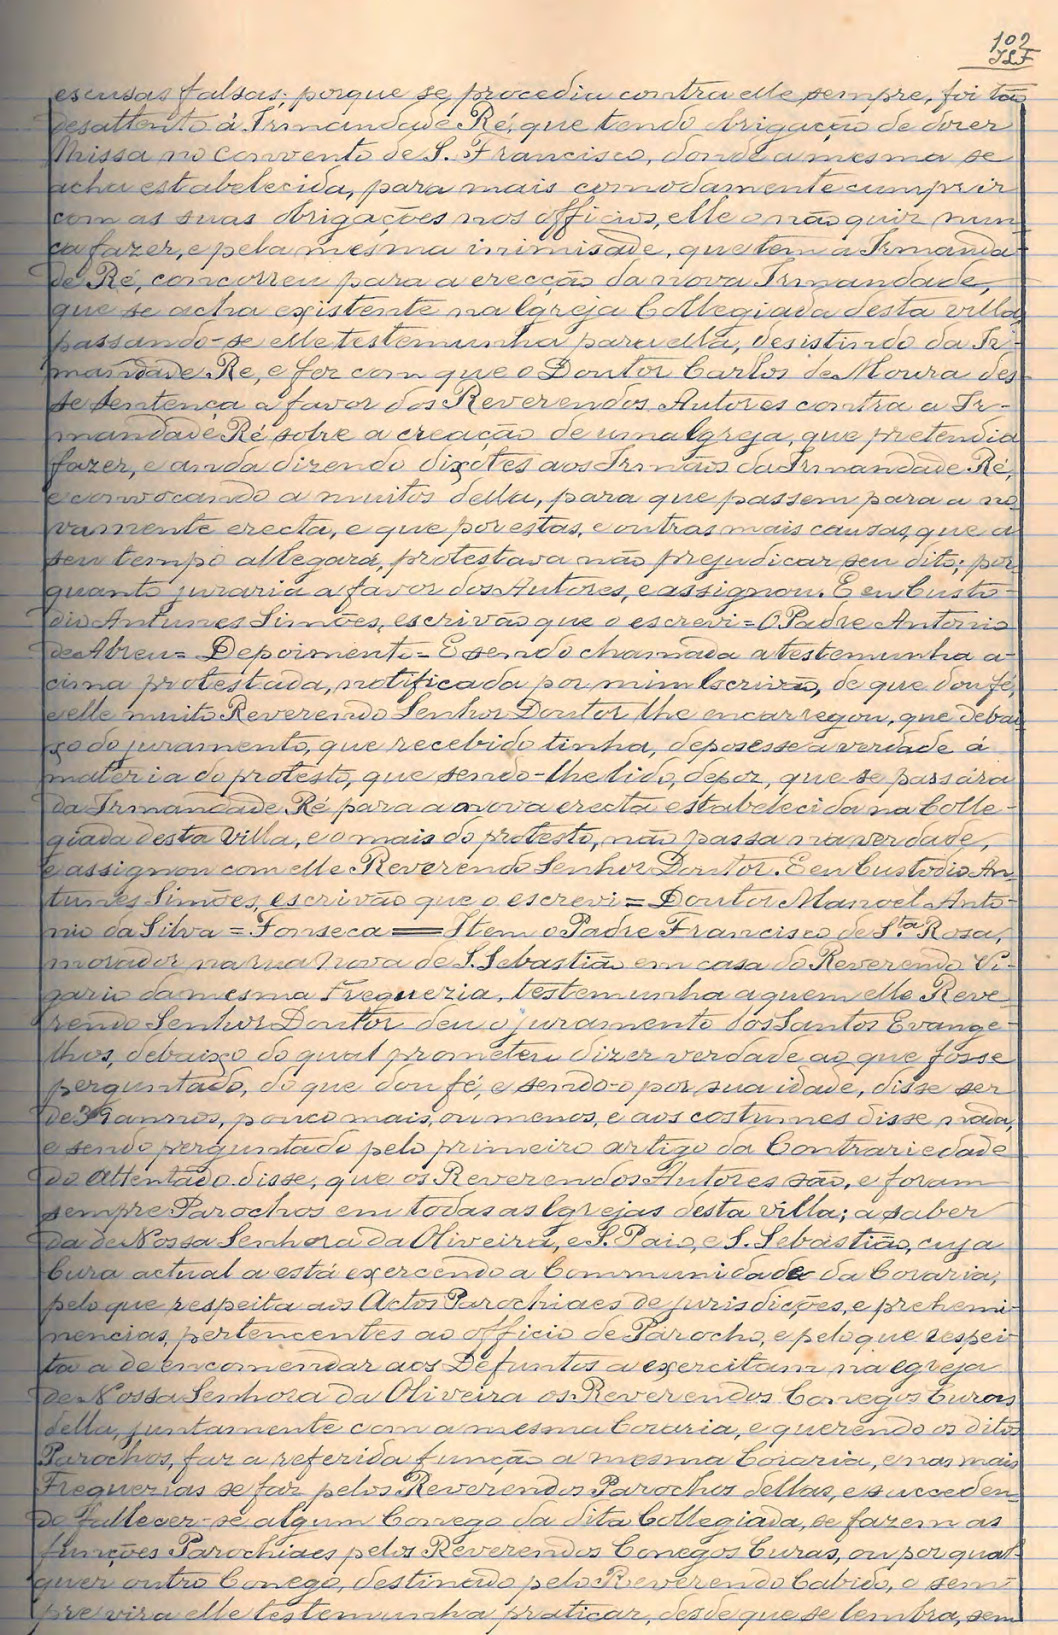 102
JLF
escusas falsas; porque se procedia contra elle sempre, foi tão
desattento á Irmandade Ré, que tendo obrigação de dizer
Missa no Convento de S. Francisco, donde a mesma se
acha estabelecida, para mais comodamente cumprir
com as suas obrigações nos officios, elle o não quiz nun-
ca fazer, e pela mesma inimisade, que tem a Irmanda-
de Ré, concorreu para a erecção da nova Irmandade,
que se acha existente na Igreja Collegiada desta villa
passando-se elle testemunha para ella, desistindo da Ir-
mandade Ré, e fez com que o Doutor Carlos de Moura des-
se sentença a favor dos Reverendos Autores contra a Ir-
mandade Ré sobre a creação de uma Igreja, que pretendia
fazer, e ainda dizendo dixotes aos Irmãos da Irmandade Ré,
e convocando a muitos della, para que passem para a no-
vamente erecta, e que por estas, e outras mais causas, que a
seu tempo allegará, protestava não prejudicar seu dito; por-
quanto juraria a favor dos Autores, e assignou. E eu Custo-
dio Antunes Simões, escrivão que o escrevi = O Padre Antonio
de Abreu = Depoimento = E sendo chamada a testemunha a-
cima protestada, notificada por mim Escrivão, de que dou fé,
e elle muito Reverendo Senhor Doutor lhe encarregou, que debai-
xo do juramento, que recebido tinha, deposesse a verdade á
materia do protesto, que sendo-lhe lido, depoz, que se passára
da Irmandade Ré para a nova erecta estabelecida na Colle-
giada desta Villa, e o mais do protesto, não passa na verdade,
e assignou com elle Reverendo Senhor Doutor. E eu Custodio An-
tunes Simões, escrivão que o escrevi = Doutor Manoel Anto-
nio da Silva = Fonseca = Item o Padre Francisco de S.ta Rosa,
morador na rua Nova de S. Sebastião em casa do Reverendo Vi-
gario da mesma Freguezia, testemunha a quem elle Reve-
rendo Senhor Doutor deu o juramento dos Santos Evange-
lhos, debaixo do qual prometeu dizer verdade ao que fosse
perguntado, do que dou fé, e sendo-o por sua idade, disse ser
de 39 annos, pouco mais, ou menos, e aos costumes disse nada,
e sendo perguntado pelo primeiro artigo da Contrariedade
do Attentado disse, que os Reverendos Autores são, e foram
sempre Parochos em todas as Igrejas desta villa; a saber
da de Nossa Senhora da Oliveira, e S. Paio, e S. Sebastião, cuja
Cura actual a está exercendo a Communidade da Coraria,
pelo que respeita aos Actos Parochiaes de jurisdicções, e prehemi-
nencias, pertencentes ao officio de Parocho, e pelo que respei-
ta a de encomendar aos Defuntos a exercitam na egreja
de Nossa Senhora da Oliveira os Reverendos Conegos Curas
della, juntamente com a mesma Coraria, e querendo os ditos
Parochos, faz a referida função a mesma Coraria, e nas mais
Freguezias se faz pelos Reverendos Parochos dellas, e succeden-
do fallecer-se algum Conego da dita Collegiada, se fazem as
funções Parochiaes pelos Reverendos Conegos Curas, ou por qual-
quer outro Conego, destinado pelo Reverendo Cabido, o sem-
pre vira elle testemunha praticar, desde que se lembra, sem